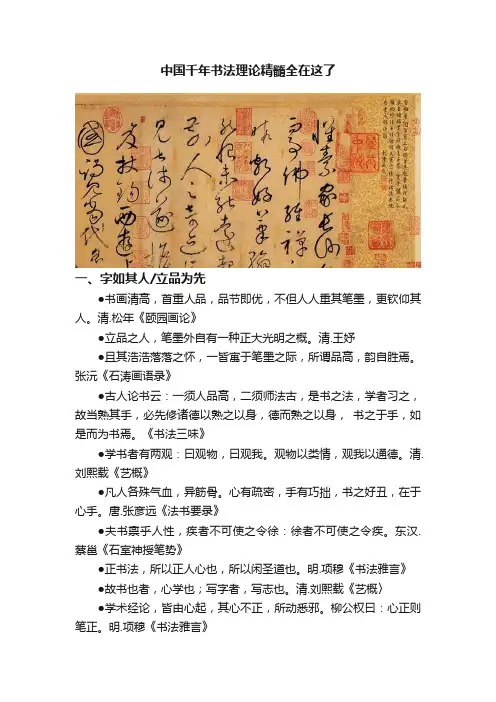 中国千年书法理论精髓全在这了
懷素家長沙
事佛經禪
暇頗好筆翰
然恨未能遠覩
前人之奇迹
見甚淺遂擔
笈杖錫西遊
國謁見當代名
一、字如其人/立品为先
●书画清高，首重人品，品节即优，不但人人重其笔墨，更钦仰其
人。清.松年《颐园画论》
●立品之人，笔墨外自有一种正大光明之概。清.王妤
●且其浩浩落落之怀，一皆寓于笔墨之际，所谓品高，韵自胜焉。
张沅《石涛画语录》
●古人论书云：一须人品高，二须师法古，是书之法，学者习之，
故当熟其手，必先修诸德以熟之以身，德而熟之以身， 书之于手，如
是而为书焉。《书法三昧》
●学书者有两观：曰观物，曰观我。观物以类情，观我以通德。清.
刘熙载《艺概》
●凡人各殊气血，异筋骨。心有疏密，手有巧拙，书之好丑，在于
心手。唐.张彦远《法书要录》
●夫书禀乎人性，疾者不可使之令徐：徐者不可使之令疾。东汉.
蔡邕《石室神授笔势》
●正书法，所以正人心也，所以闲圣道也。明.项穆《书法雅言》
●故书也者，心学也；写字者，写志也。清.刘熙载《艺概〉
●学术经论，皆由心起，其心不正，所动悉邪。柳公权曰：心正则
笔正。明.项穆《书法雅言》